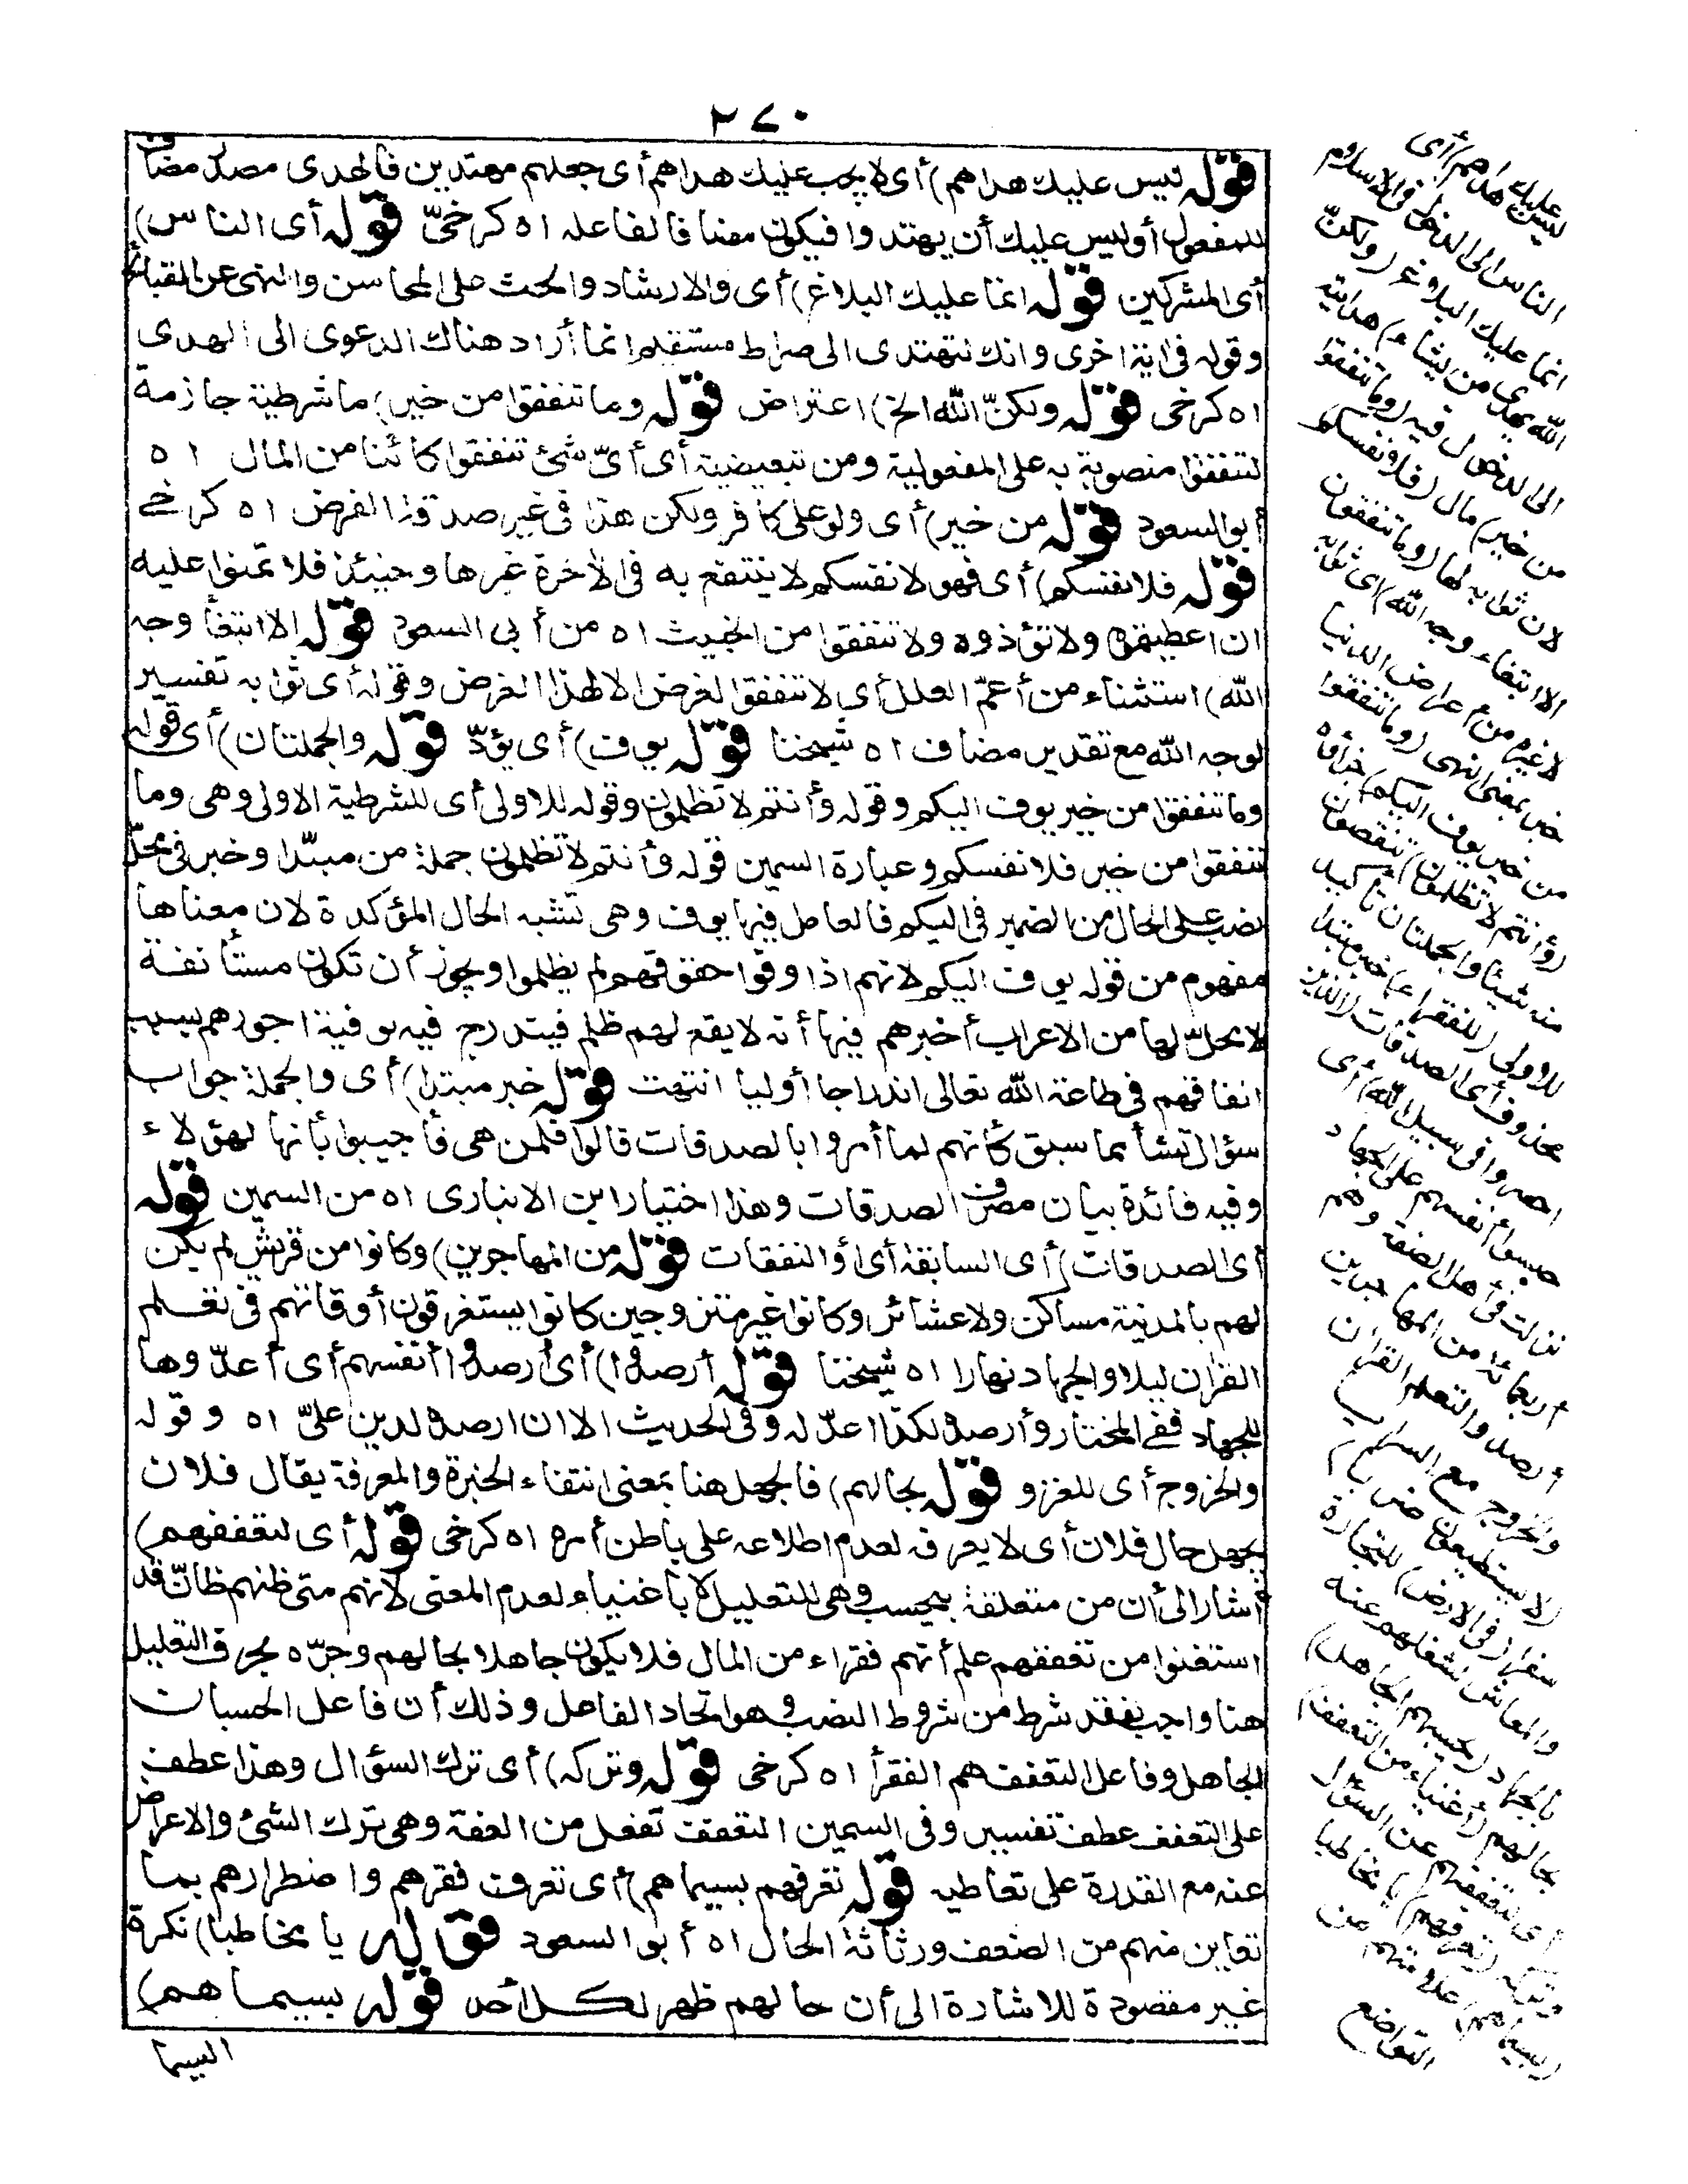 ٢٧٠
قوله ليس عليك هداهم) أى لا يجب عليك هداهم أى جعلهم مهتدين فالهدى مصدر مضاف
للمفعول أو ليس عليك أن يهتدوا فيكون مضافا لفاعله اه كرخىّ قوله أى الناس)
أى المشركين قوله انما عليك البلاغ) أى والارشاد والحث على المحاسن والنهى عن القبائح
وقوله فى اية اخرى وانك لتهتدى الى صراط مستقيم انما أراد هناك الدعوى الى الهدى
اه كرخى قوله ولكنّ الله الخ) اعتراض قوله وما تنفقوا من خير) ما شرطية جازمة
لتنفقوا منصوبة به على المفعولية ومن تبعيضية أى أىّ شئ تنفقوا كائنا من المال اه
أبو السعود قوله من خير) أى ولو على كافر ولكن هذا فى غير صدقة الفرض اه كرخى
قوله فلانفسكم) أى فهو لانفسكم لا ينتفع به فى الآخرة غيرها وحينئذ فلا تمنوا عليه
ان اعطيتموه ولا تؤذوه ولا تنفقوا من الخبيث اه من أبى السعود قوله الا ابتغأ وجه
الله) استثناء من أعمّ العلل أى لا تنفقوا لغرض الا لهذا الغرض وقوله أى ثوابه تفسير
لوجه الله مع تقدير مضاف اه شيخنا قوله يوف) أى يؤدّ قوله والجملتان) أى قوله
وما تنفقوا من خير يوف اليكم وقوله وأنتم لا تظلمون وقوله للاولى أى للشرطية الاولى وهى وما
تنفقوا من خير فلانفسكم وعبارة السمين قوله وأنتم لا تظلمون جملة من مبتدا وخبر فى محلّ
نصب على الحال من الضمير فى اليكم فالعامل فيها يوف وهى تشبه الحال المؤكدة لان معناها
مفهوم من قوله يوف اليكم لانهم اذا وفوا حقوقهم لم يظلموا ويجوز أن تكون مستأنفة
لا محلّ لها من الاعراب أخبرهم فيها أنه لا يقع لهم ظلم فيتدرج فيه توفية اجورهم بسبب
انفاقهم فى طاعة الله تعالى اندراجا أوليا انتهت قوله خبر مبتدا) أى والجملة جواب
سؤال نشأ مما سبق كأنهم لما أمروا بالصدقات قالوا فلمن هى فأجيبوا بأنها لهؤلاء
وفيه فائدة بيان مصرف الصدقات وهذا اختيار ابن الانبارى اه من السمين قوله
أى الصدقات) أى السابقة أى أو النفقات قوله من المهاجرين) وكانوا من قريش لم يكن
لهم بالمدينة مساكن ولا عشائر وكانوا غير متزوجين كانوا يستغرقون أوقاتهم فى تعلم
القرآن ليلا والجهاد نهارا اه شيخنا قوله أرصدوا) أى أرصدوا أنفسهم أى أعدّوها
للجهاد ففى المختار وأرصده لكذا اعدّ له وفى الحديث الا ان ارصده لدين علىّ اه وقوله
والخروج أى للغزو قوله بحالهم) فالجهل هنا بمعنى انتفاء الخبرة والمعرفة يقال فلان
يجهل حال فلان أى لا يعرفه لعدم اطلاعه على باطن أمره اه كرخى قوله أى لتعففهم)
أشار الى أن من متعلقة بيحسب وهى للتعليل لا بأغنياء لعدم المعنى لانهم متى ظنهم ظانّ قد
استغنوا من تعففهم علم أنهم فقراء من المال فلا يكون جاهلا بحالهم وجرّه بحرف التعليل
هنا واجب بفقد شرط من شروط النصب وهو اتحاد الفاعل وذلك أن فاعل الحسبان
الجاهل وفاعل التعفف هم الفقرأ اه كرخى قوله وتركه) أى ترك السؤال وهذا عطف
على التعفف عطف تفسير وفى السمين التعفف تفعل من العفة وهى ترك الشئ والاعراض
عنه مع القدرة على تعاطيه قوله تعرفهم بسيماهم) أى تعرف فقرهم واضطرارهم بما
تعاين منهم من الضعف ورثاثة الحال اه أبو السعود قوله يا مخاطبا) نكرة
غير مقصودة للاشارة الى أن حالهم ظهر لكل أحد قوله بسيماهم)
السيما
ليس عليك هداهم) أى
الناس الى الدخول فى الاسلام
انما عليك البلاغ (ولكنّ
الله يهدى من يشاء) هدايته
الى الدخول فيه (وما تنفقوا
من خير) مال (فلانفسكم)
لان ثوابه لها (وما تنفقون
الا ابتغاء وجه الله) أى ثوابه
لا غيره من أعراض الدنيا
خبر بمعنى النهى (وما تنفقوا
من خير يوف اليكم) جزاؤه
(وأنتم لا تظلمون) تنقصون
منه شيئا والجملتان تأكيد
للاولى (للفقراء) خبر مبتدا
محذوف أى الصدقات (الذين
احصروا فى سبيل الله) أى
حبسوا أنفسهم على الجهاد
نزلت فى أهل الصفة وهم
أربعمائة من المهاجرين
أرصدوا لتعلم القرآن
والخروج مع السرايا
(لا يستطيعون ضربا)
سفرا (فى الارض) للتجارة
والمعاش لشغلهم عنه
بالجهاد (يحسبهم الجاهل)
بحالهم (أغنياء من التعفف)
أى لتعففهم عن السؤال
وتركه (تعرفهم) يا مخاطبا
(بسيماهم) علامتهم من
التواضع